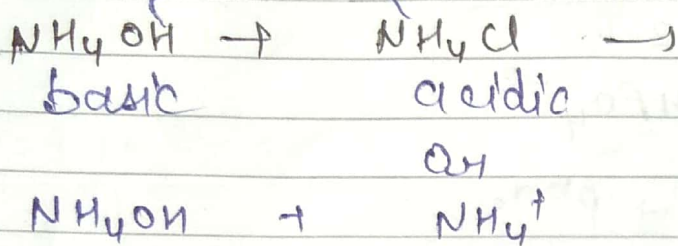 NH4OH → NH4Cl →
basic acidic
Or
NH4OH + NH4+